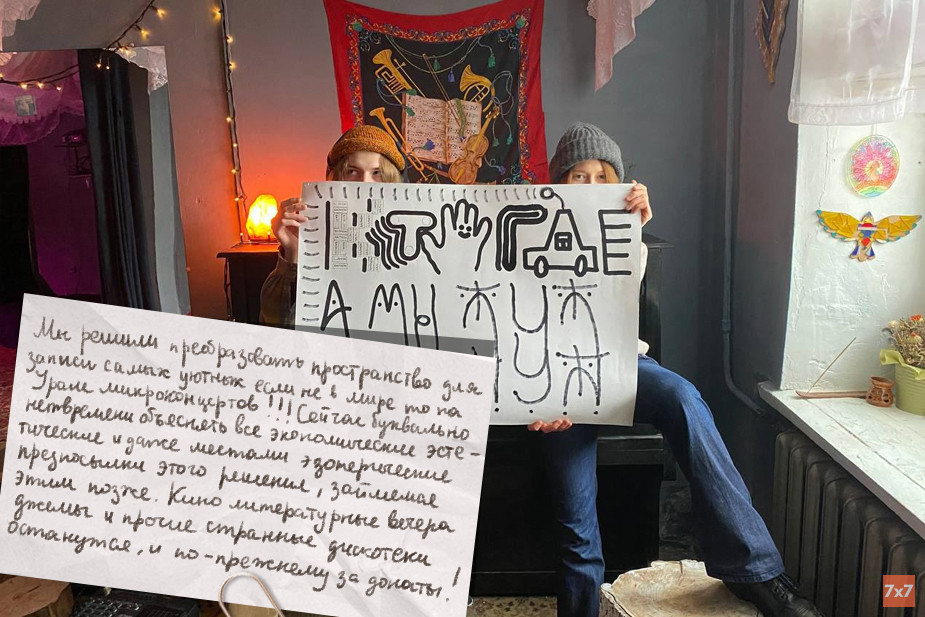 А МЫ
Мы решили преобразовать пространство для
записи самых уютных если не в мире то на
Урале микроконцертов!!! Сейчас буквально
нет времени объяснять все экономические эсте-
тические и даже местами эзотерические
предпосылки этого решения, займемся
этим позже. Кино литературные вечера
джемы и прочие странные дискотеки
останутся, и по-прежнему за донаты!
7x7